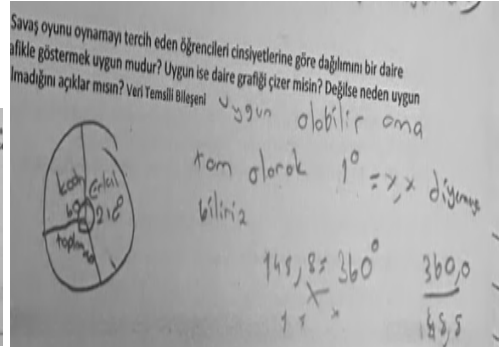 Savaş oyunu oynamayı tercih eden öğrencileri cinsiyetlerine göre dağılımını bir daire
afikle göstermek uygun mudur? Uygun ise daire grafiği çizer misin? Değilse neden uygun
lmadığını açıklar mısın? Veri Temsili Bileşeni
uygun olobilir ama
tam olarak 1° = x,x diyemeye
biliriz
Erkek
218
toplam
360°
360,0